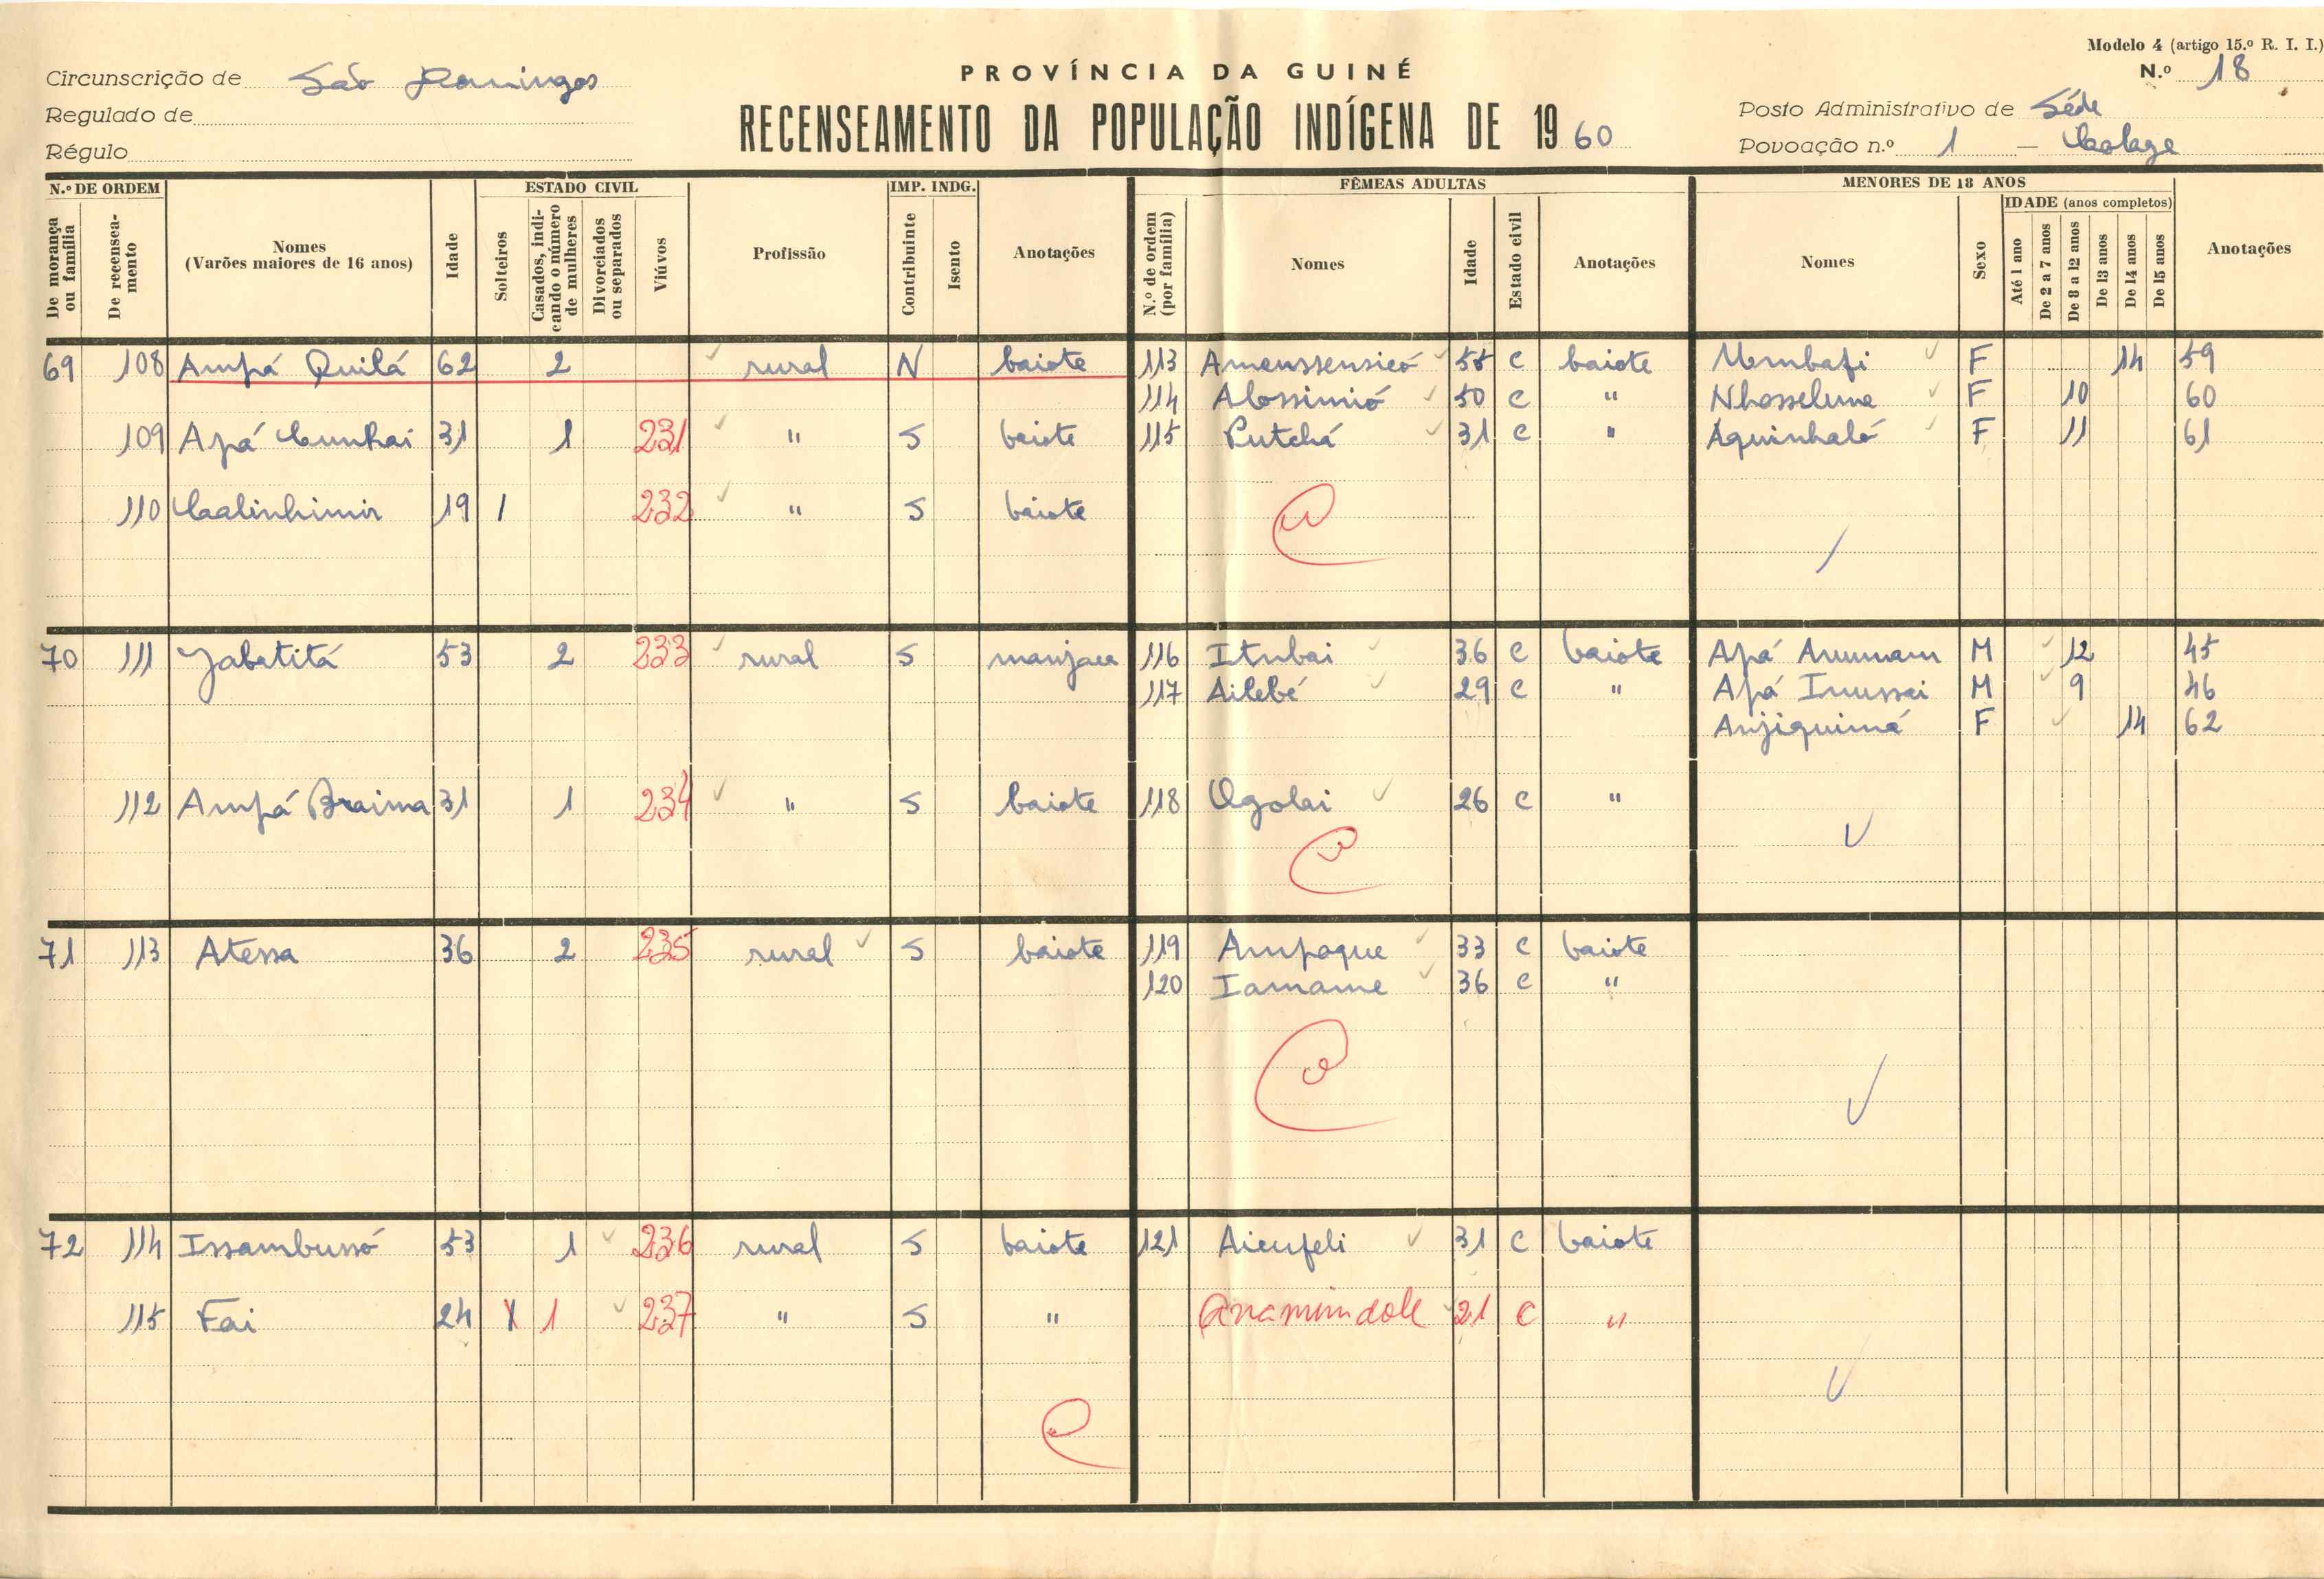 Modelo 4 (artigo 15.º R. I. I.)
Circunscrição de São Domingos
PROVÍNCIA DA GUINÉ
N.º 18
Regulado de
RECENSEAMENTO DA POPULAÇÃO INDÍGENA DE 1960
Posto Administrativo de Séde
Régulo
Povoação n.º 1 — Colage
N.º DE ORDEM
De morança ou família
De recenseamento
Nomes
(Varões maiores de 16 anos)
Idade
ESTADO CIVIL
Solteiros
Casados, indicando o número de mulheres
Divorciados ou separados
Viúvos
Profissão
IMP. INDG.
Contribuinte
Isento
Anotações
FÊMEAS ADULTAS
N.º de ordem (por família)
Nomes
Idade
Estado civil
Anotações
MENORES DE 18 ANOS
Nomes
Sexo
IDADE (anos completos)
Até 1 ano
De 2 a 7 anos
De 8 a 12 anos
De 13 anos
De 14 anos
De 15 anos
Anotações
69 108 Ampá Quilá 62 2 rural N baiote 113 55 C baiote F 14 59
114 Alossimió 50 C " Nhosselume F 10 60
109 Apá Cunhai 31 1 231 " S baiote 115 Putchá 31 C " Aquinhaló F 11 61
110 Calinhimir 19 1 232 " S baiote
70 111 Jabatitá 53 2 233 rural S manjaca 116 Itubai 36 C baiote Apá M 12 45
117 Ailebé 29 C " Apá Inussai M 9 46
Anjiquimá F 14 62
112 Ampá Braima 31 1 234 " S baiote 118 Ogolai 26 C "
71 113 Atessa 36 2 235 rural S baiote 119 Ampaque 33 C baiote
120 Iamame 36 C "
72 114 Issambussó 53 1 236 rural S baiote 121 Aienfeli 31 C baiote
115 Fai 24 1 237 " S " Anamimdole 21 C "